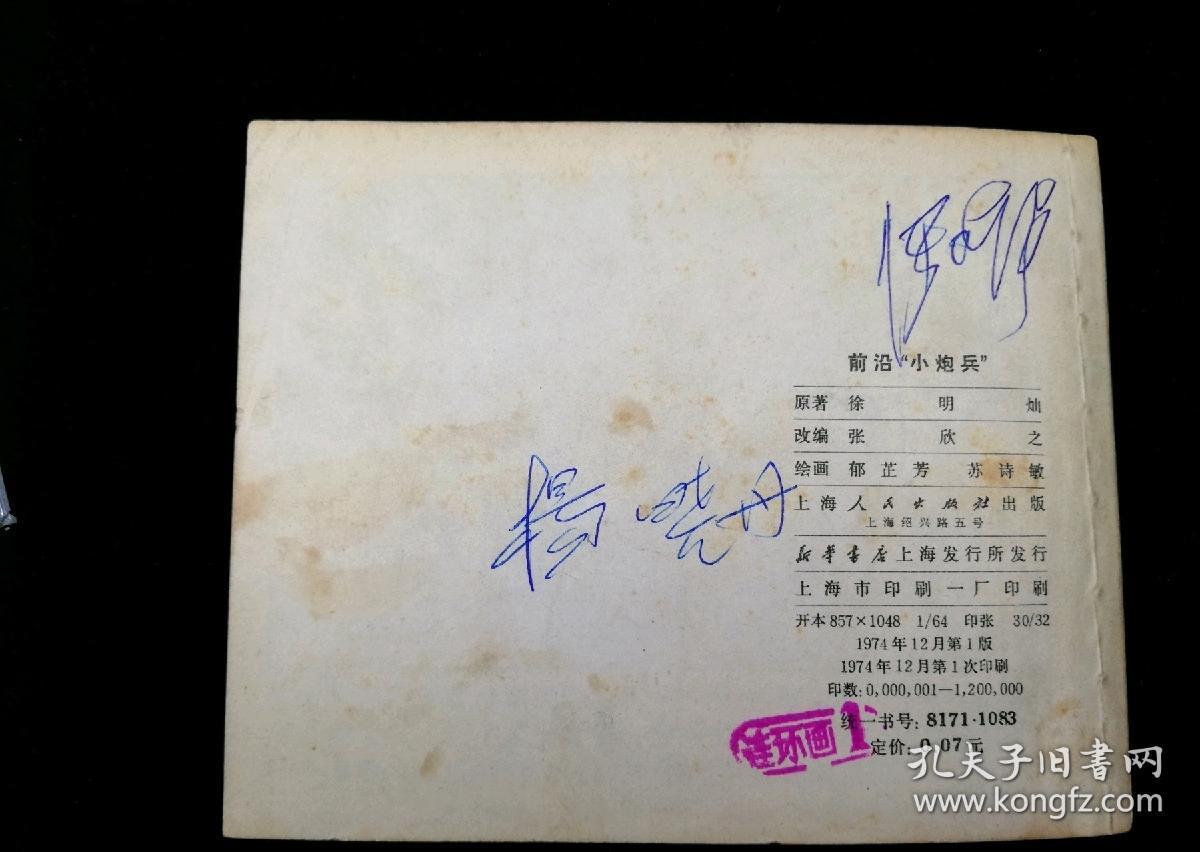 前沿“小炮兵”
原著 徐明灿
改编 张欣之
绘画 郁芷芳 苏诗敏
上海人民出版社出版
上海绍兴路五号
新华书店上海发行所发行
上海市印刷一厂印刷
开本 857×1048 1/64 印张 30/32
1974年12月第1版
1974年12月第1次印刷
印数:0,000,001—1,200,000
统一书号:8171·1083
定价:0.07元
杨晓丹
连环画1
孔夫子旧书网
www.kongfz.com